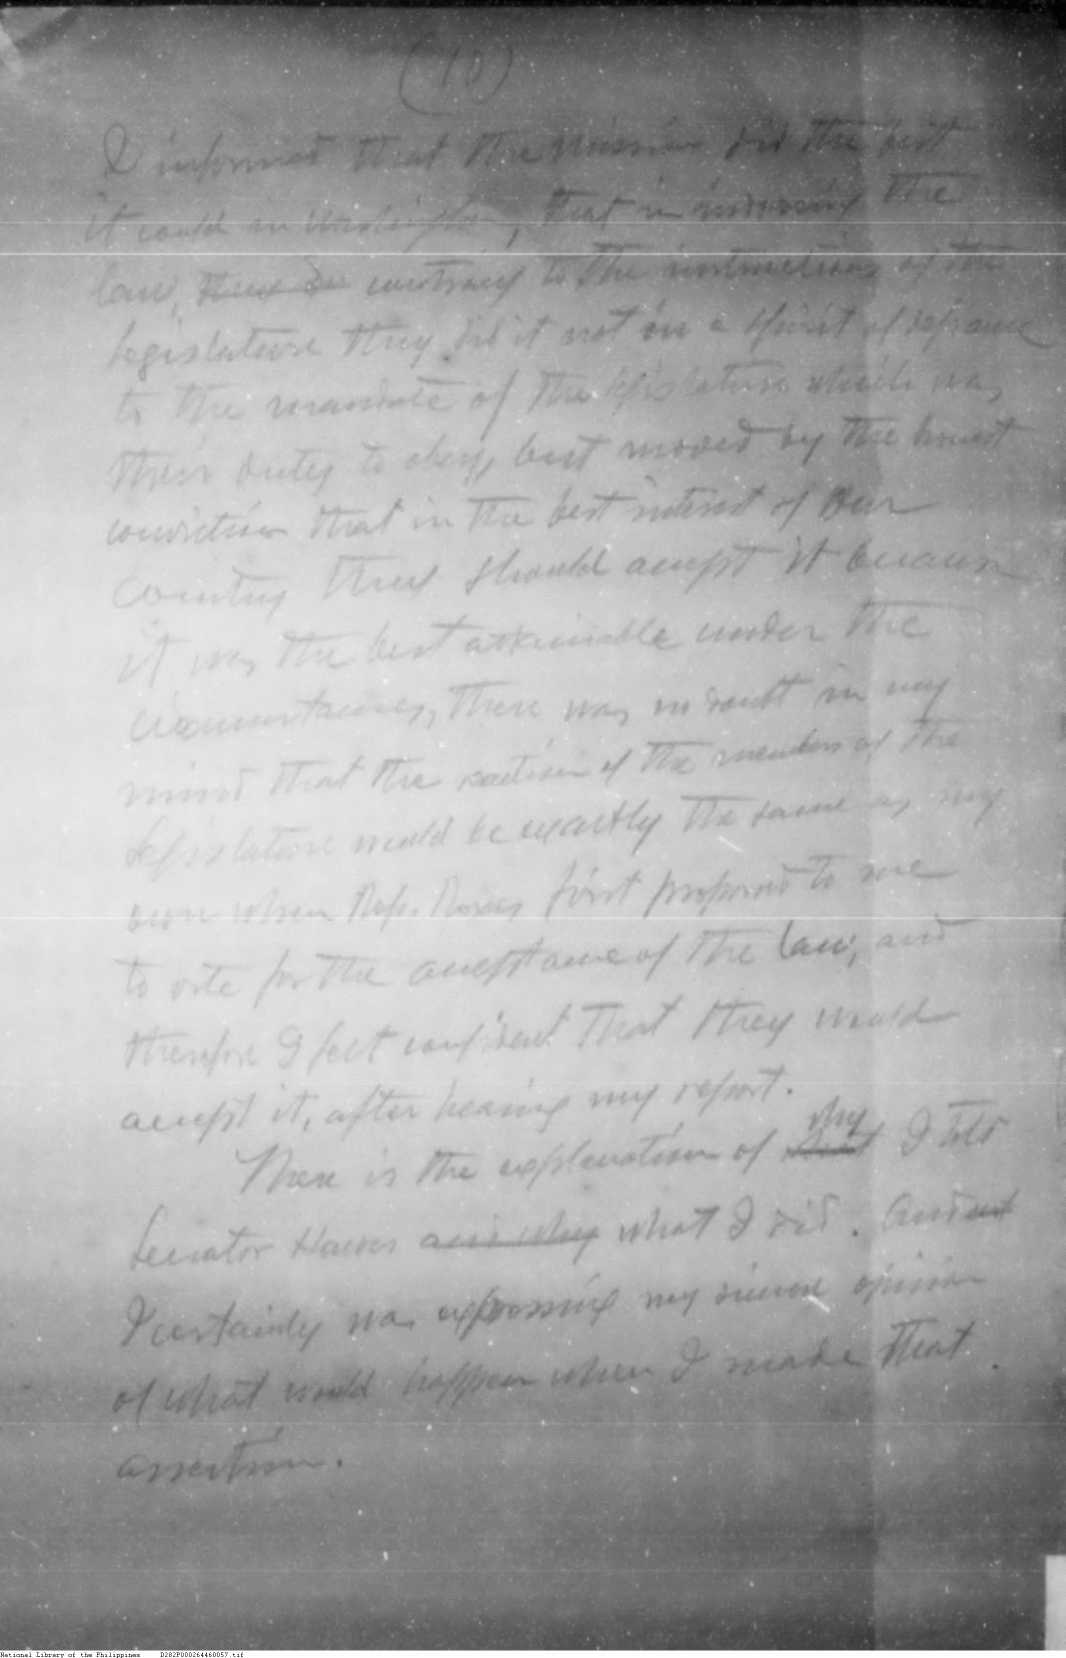 (10)
I informed that the Mission did the best
it could in Washington, that in indorsing the
law, they did contrary to the instructions of the
Legislature they did it not in a spirit of defiance
to the mandate of the Legislature which was
their duty to obey, but moved by the honest
conviction that in the best interest of our
country they should accept it because
it was the best attainable under the
circumstances, there was no doubt in my
mind that the reaction of the members of the
Legislature would be exactly the same as my
own when Rep. Roxas first proposed to me
to vote for the acceptance of the law, and
therefore I felt confident that they would
accept it, after hearing my report.
There is the explanation of why I told
Senator Hawes and why what I did. And
I certainly was expressing my sincere opinion
of what would happen when I made that
assertion.
National Library of the Philippines D282P000264460057.tif